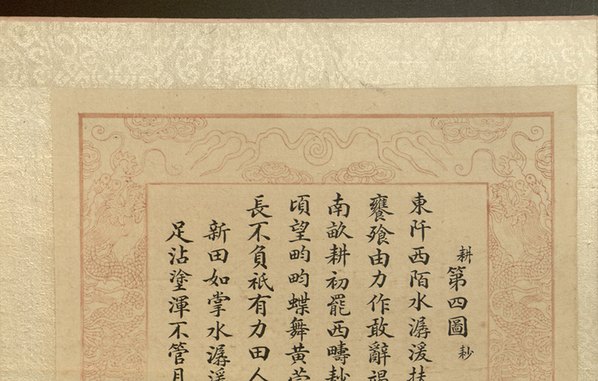 耕第四圖耖
東阡西陌水潺湲扶
饔飧由力作敢辭
南畝耕初罷西疇耖
頃望畇畇蝶舞黃
長不負祇有力田人
新田如掌水潺湲
足沾塗渾不管月